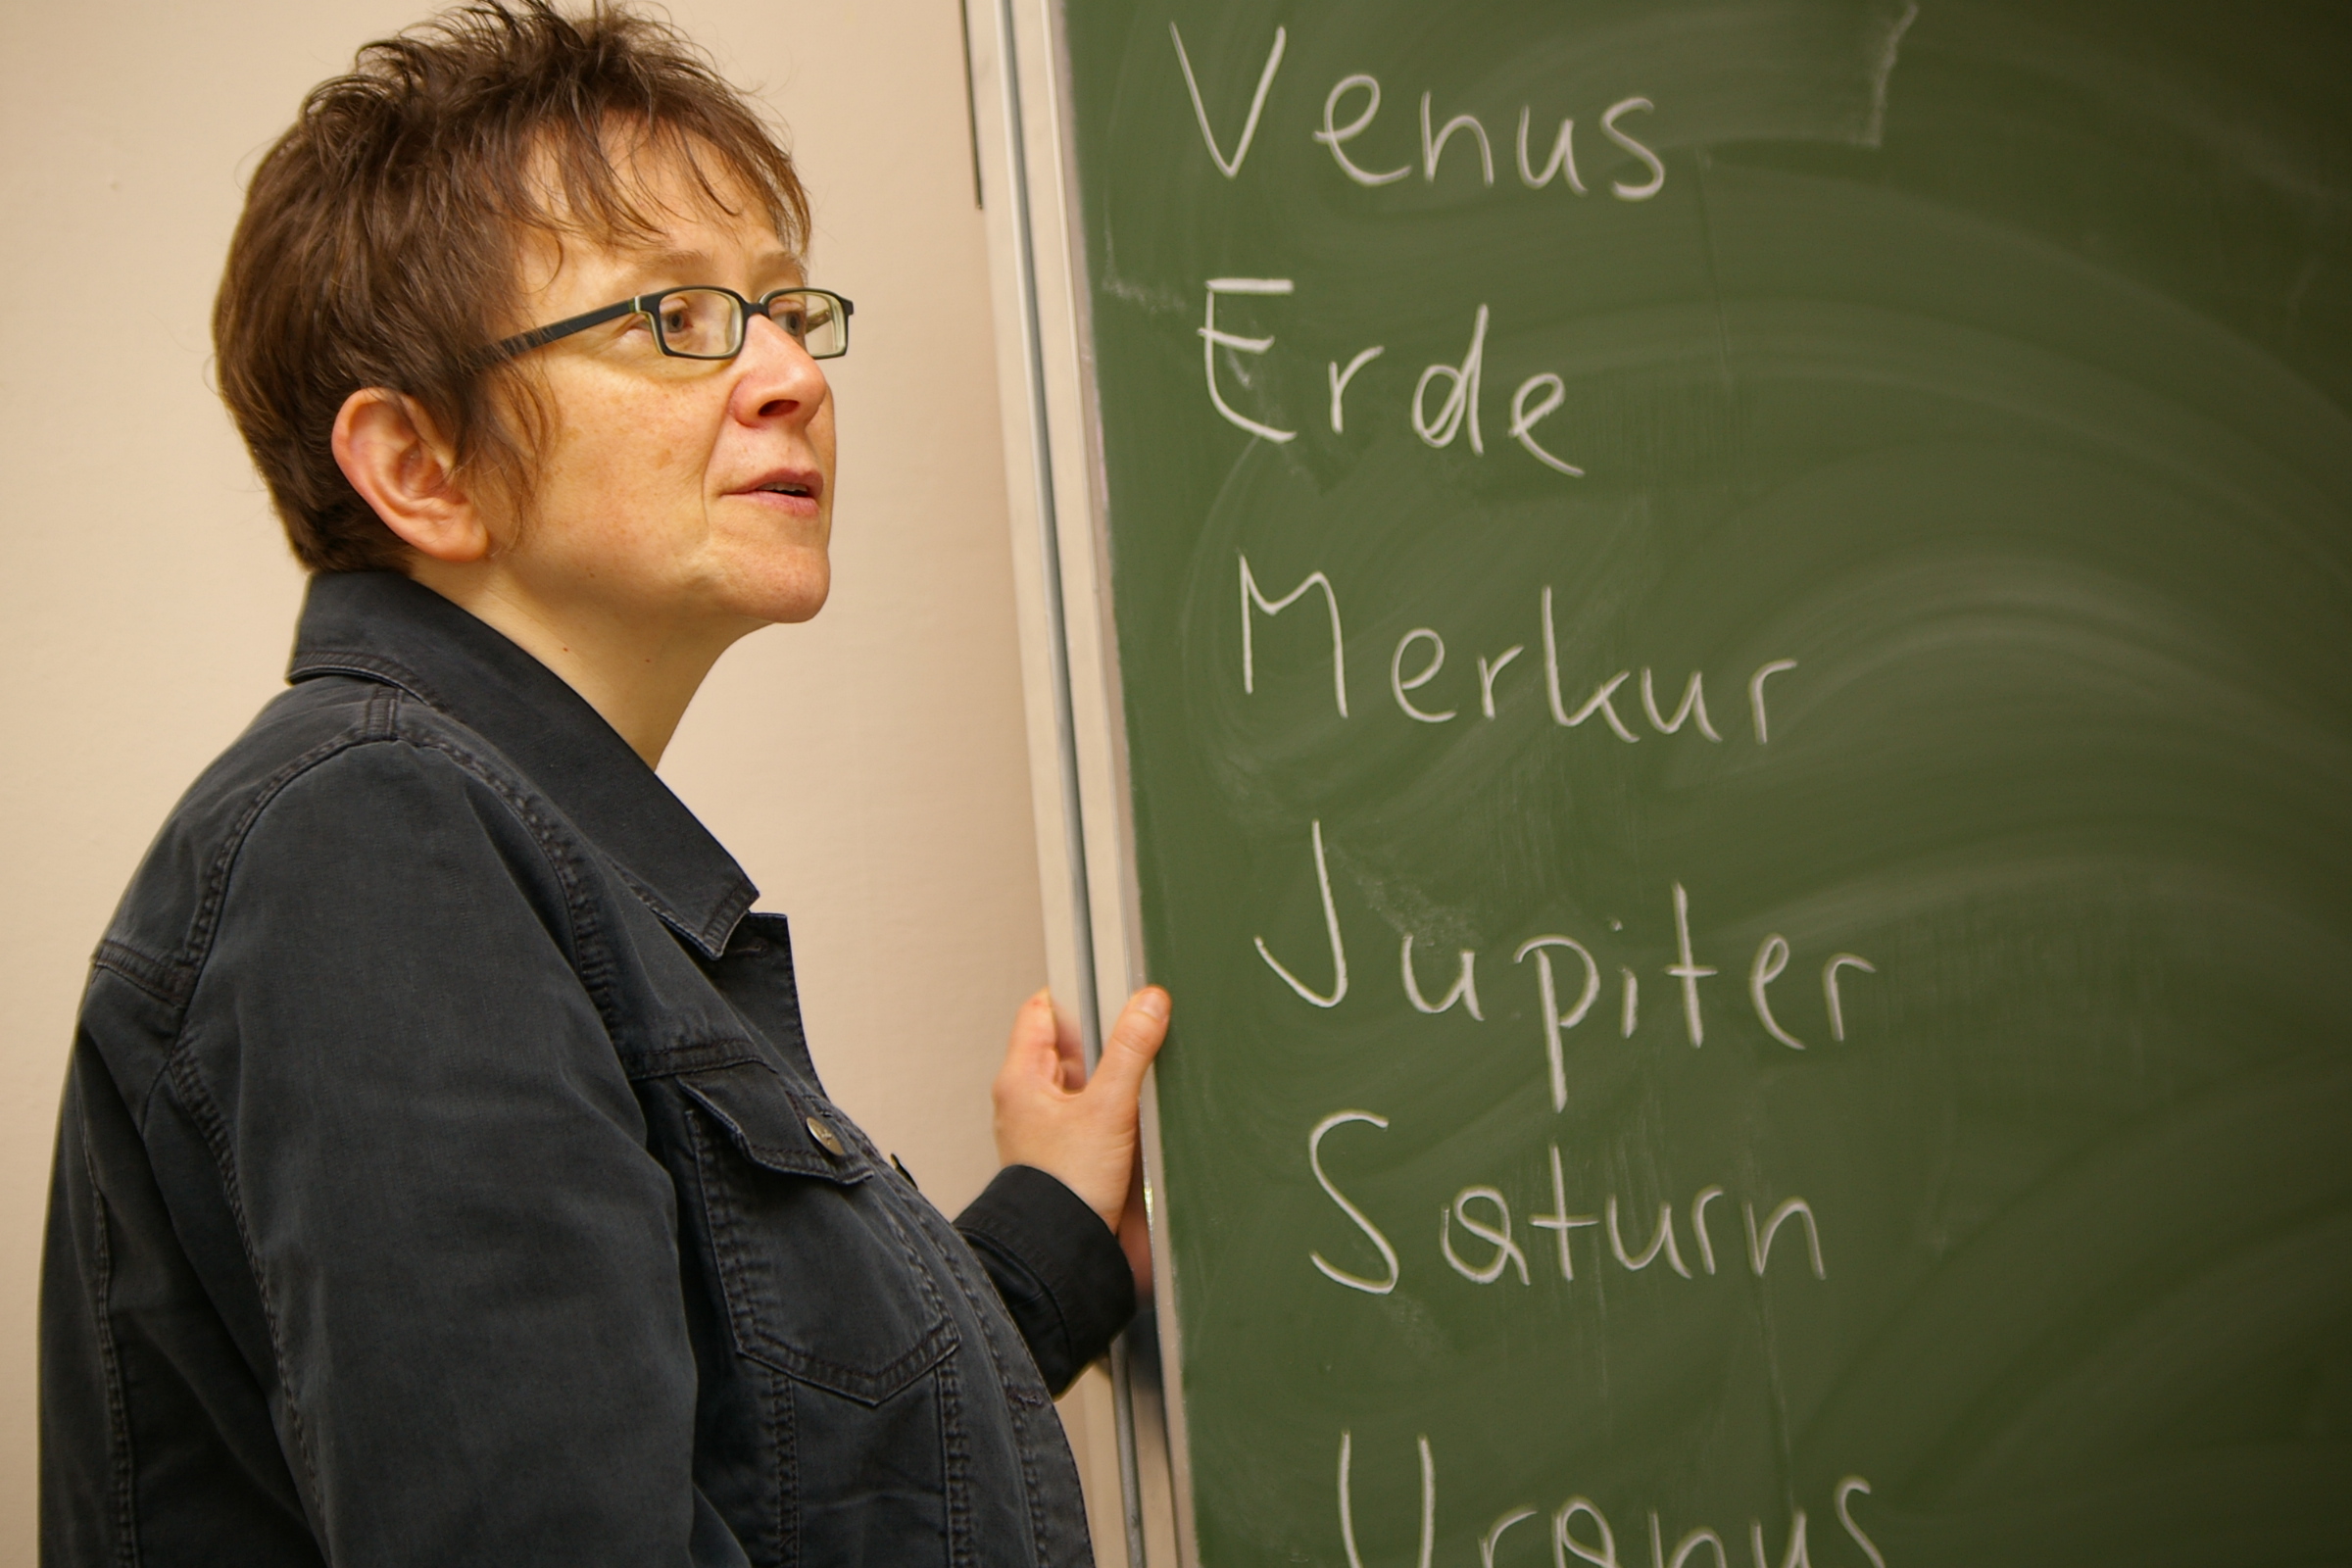 Venus
Erde
Merkur
Jupiter
Saturn
Uranus